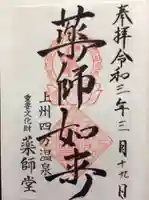 奉拝令和三年二月十九日
薬師如来
上州四万温泉
重要文化財
薬師堂